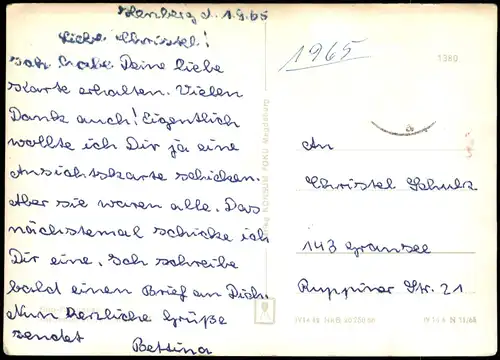 Ilenberg d. 1.9.65
Liebe Christel!
Ich habe Deine liebe
Karte erhalten. Vielen
Dank auch! Eigentlich
wollte ich Dir ja eine
Ansichtskarte schicken.
Aber sie waren alle. Das
nächstemal schicke ich
Dir eine. Ich schreibe
bald einen Brief an Dich.
Nun herzliche Grüße
sendet Bettina
1965
1380
An
Christel Schulz
143 Gransee
Ruppiner Str. 21
Magdeburg